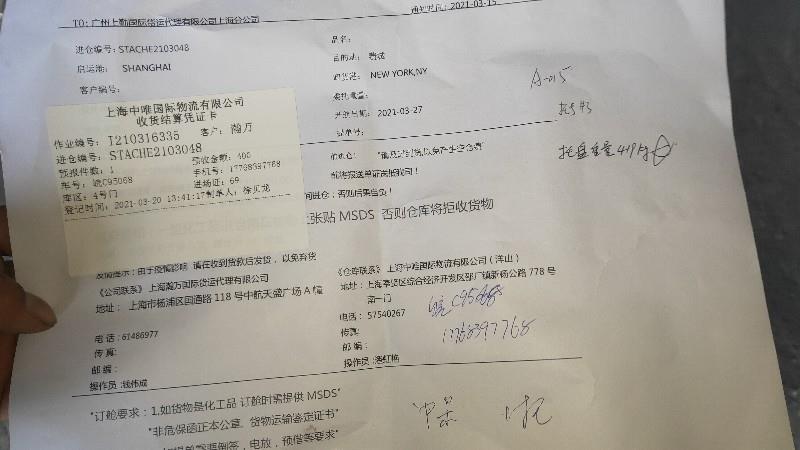 TO: 广州上勤国际货运代理有限公司上海分公司
通知时间: 2021-03-15
进仓编号: STACHE2103048
品名:
启运港: SHANGHAI
目的港: NEW YORK,NY
客户编号:
2021-03-27
上海中唯国际物流有限公司
收货结算凭证卡
作业编号: I210316335 客户: 瀚万
进仓编号: STACHE2103048
预报件数: 1 预收金额: 400
车号: 皖C95068 手机号: 17768397768
库区: 4号门 进场证: 69
登记时间: 2021-03-20 13:41:17 制单人: 徐贝龙
A-015
托盘重量419kg
张贴 MSDS 否则仓库将拒收货物
友情提示: 由于疫情影响 请在收到货款后发货, 以免弃货
《公司联系》 上海瀚万国际货运代理有限公司
地址: 上海市杨浦区国通路 118 号中航天盛广场 A 幢
电话: 61486977
传真:
邮编:
操作员: 钱伟成
《仓库联系》 上海中唯国际物流有限公司 (洋山)
地址: 上海奉贤区综合经济开发区邬厂镇新杨公路 778 号
南一门
电话: 57540267
皖C95068
传真:
17768397768
邮编:
操作员:
"订舱要求: 1.如货物是化工品 订舱时需提供 MSDS"
"非危保函正本公章, 货物运输鉴定证书"
倒签, 电放, 预借等要求"